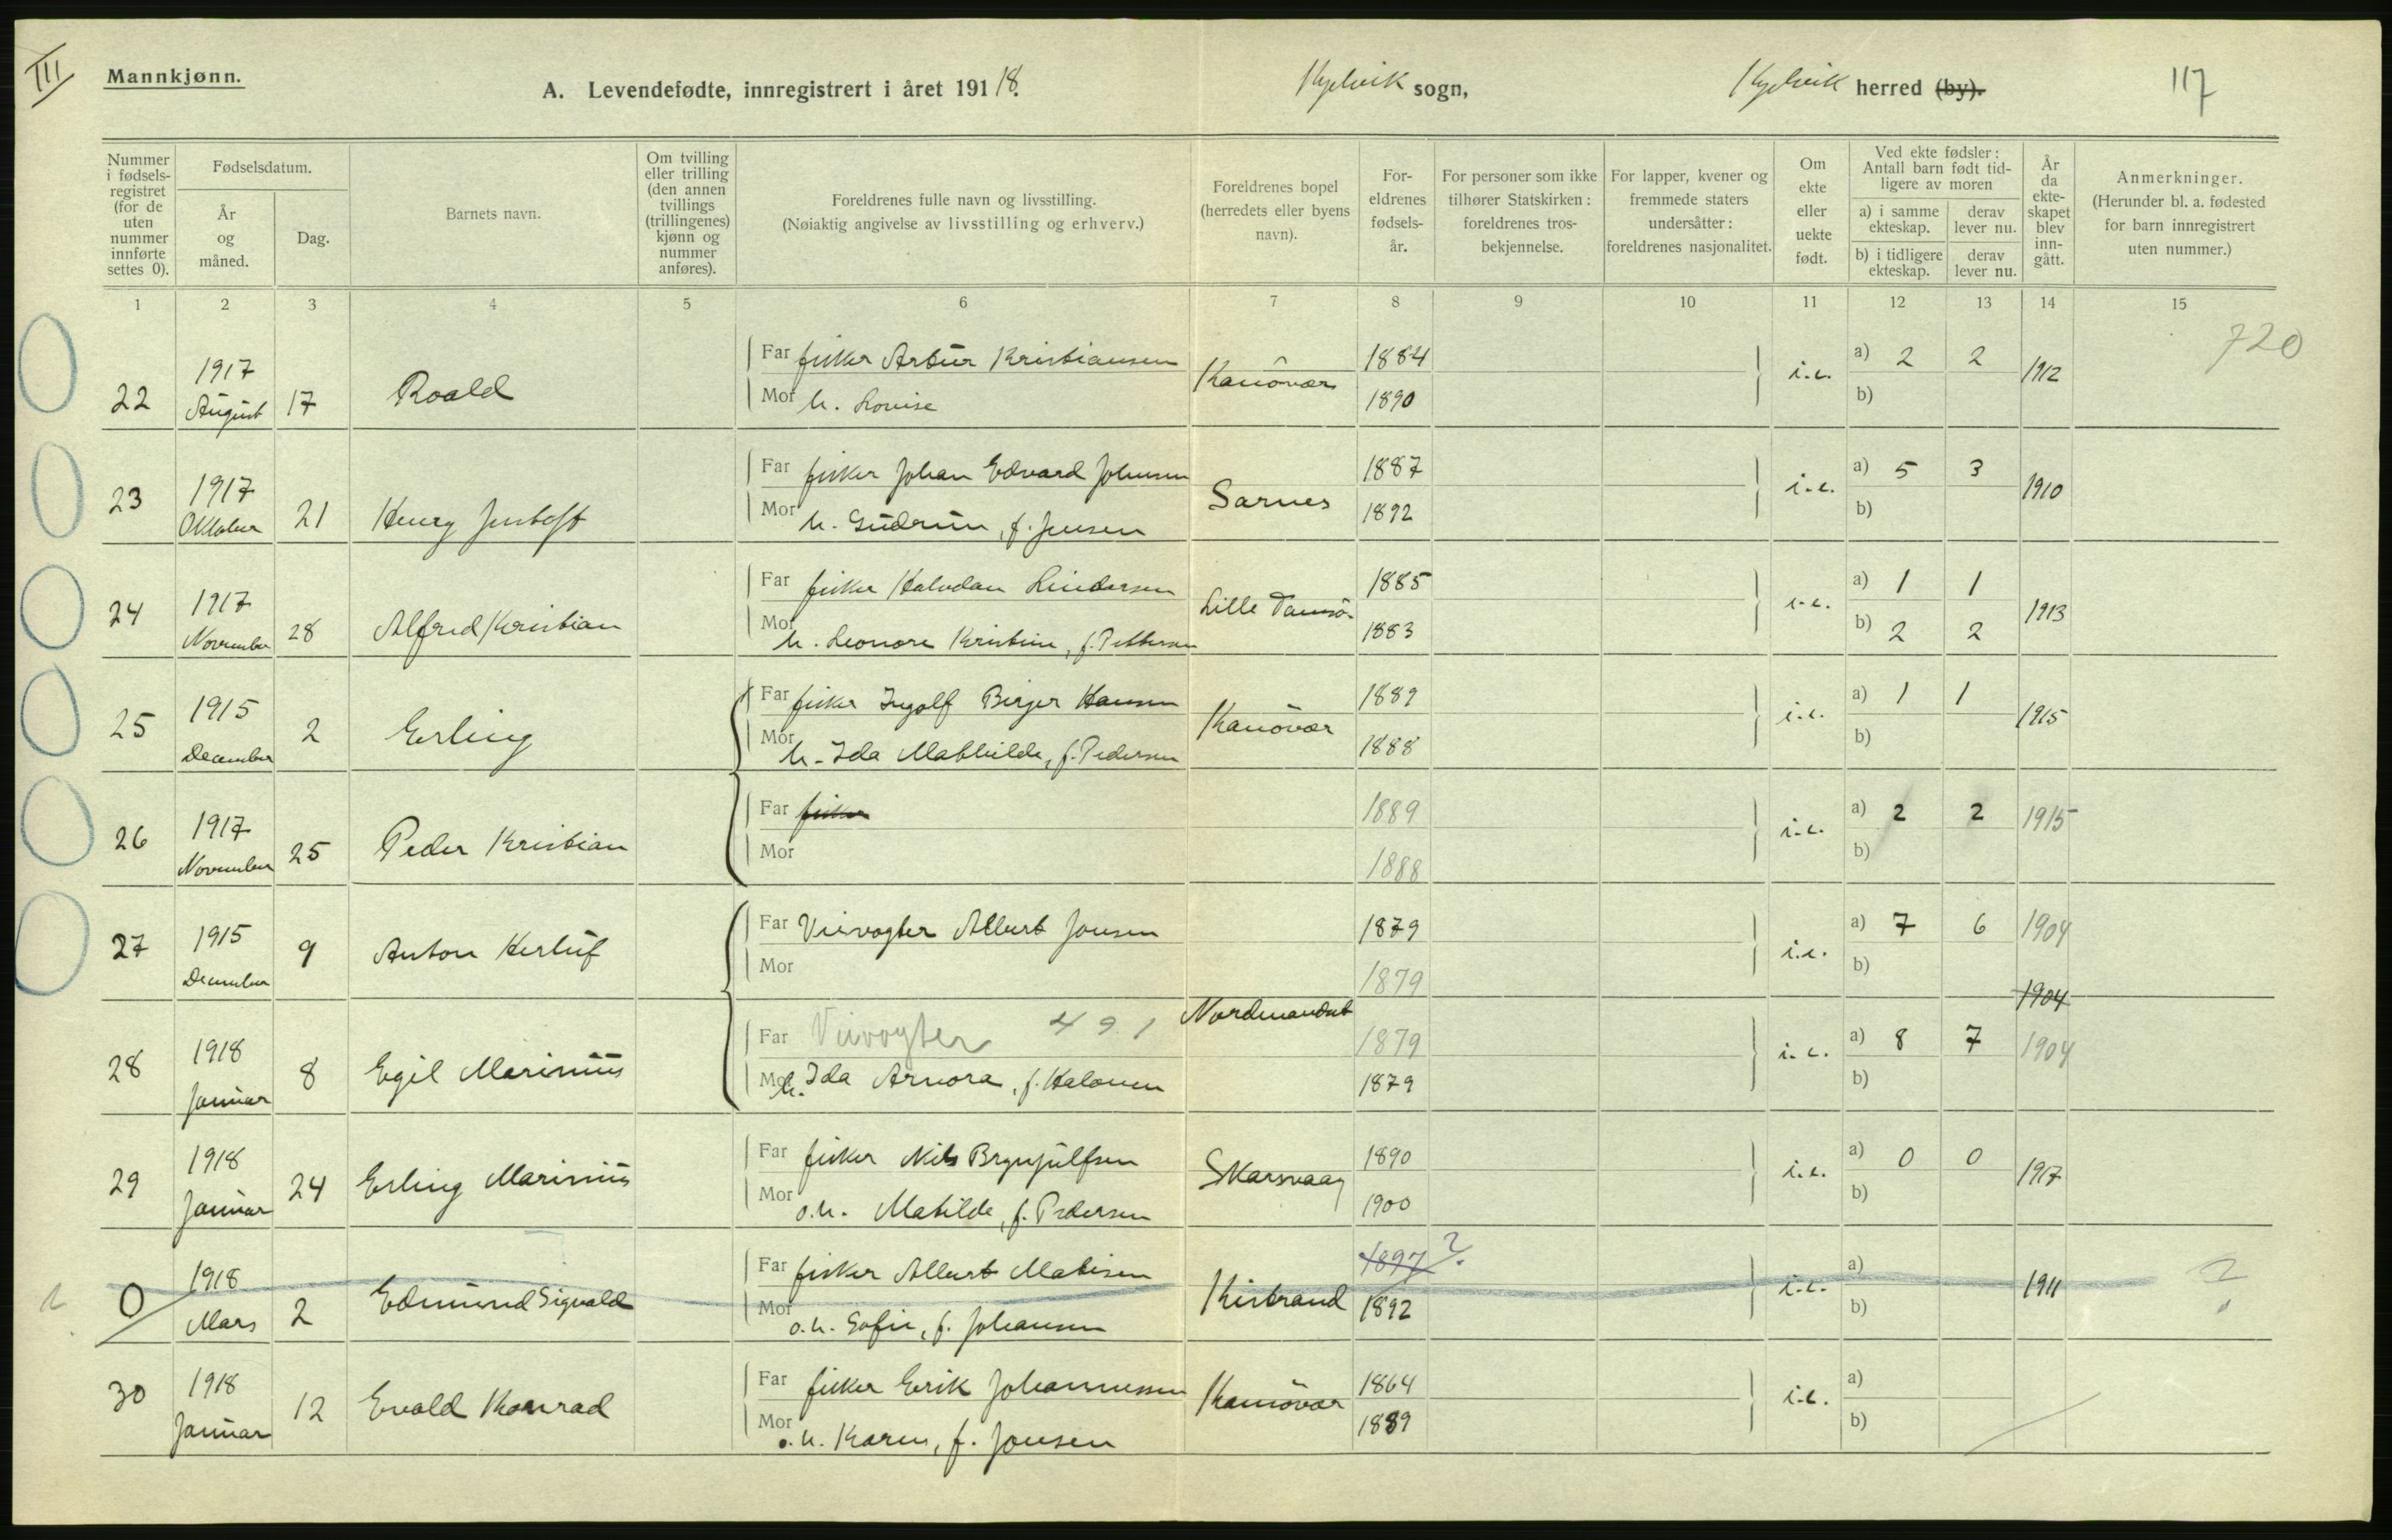 III
Mannkjønn.
A. Levendefødte, innregistrert i året 1918.
Kjelvik sogn,
Kjelvik herred (by).
117
Nummer i fødsels-registret (for de uten nummer innførte settes 0).
Fødselsdatum.
År og måned.
Dag.
Barnets navn.
Om tvilling eller trilling (den annen tvillings (trillingenes) kjønn og nummer anføres).
Foreldrenes fulle navn og livsstilling.
(Nøiaktig angivelse av livsstilling og erhverv.)
Foreldrenes bopel (herredets eller byens navn).
For-eldrenes fødsels-år.
For personer som ikke tilhører Statskirken: foreldrenes tros-bekjennelse.
For lapper, kvener og fremmede staters undersåtter: foreldrenes nasjonalitet.
Om ekte eller uekte født.
Ved ekte fødsler: Antall barn født tid-ligere av moren
a) i samme ekteskap.
derav lever nu.
b) i tidligere ekteskap.
derav lever nu.
År da ekte-skapet blev inn-gått.
Anmerkninger.
(Herunder bl. a. fødested for barn innregistrert uten nummer.)
1 2 3 4 5 6 7 8 9 10 11 12 13 14 15
720
22 1917 August 17 Roald
Far fisker Artur Kristiansen 1884
Mor h. Lovise 1890
Kamøvær i.e. a) 2 2 b) 1912
23 1917 Oktober 21 Henry Justoft
Far fisker Johan Edvard Johnsen 1887
Mor h. Gudrun, f. Jensen 1892
Sarnes i.e. a) 5 3 b) 1910
24 1917 November 28 Alfred Kristian
Far fisker Halvdan Lindersen 1885
Mor h. Leonore Kristine, f. Pettersen 1883
Lille Tamsö. i.e. a) 1 1 b) 2 2 1913
25 1915 December 2 Erling
Far fisker Ingolf Birger Hansen 1889
Mor h. Ida Mathilde, f. Pedersen 1888
Kamøvær i.e. a) 1 1 b) 1915
26 1917 November 25 Peder Kristian
Far fisker 1889
Mor 1888
i.e. a) 2 2 b) 1915
27 1915 December 9 Anton Herluf
Far Viervogter Albert Jonsen 1879
Mor 1879
i.e. a) 7 6 b) 1904
1904
Nordmandset
28 1918 Januar 8 Egil Marinius
Far Viervogter 491 1879
Mor h. Ida Arnora, f. Halonen 1879
i.e. a) 8 7 b) 1904
29 1918 Januar 24 Erling Marinius
Far fisker Nils Brynjulfsen 1890
Mor o.h. Matilde, f. Pedersen 1900
Skarsvaag i.e. a) 0 0 b) 1917
0 1918 Mars 2 Edmund Sigvald
Far fisker Albert Matisen 1897 ?
Mor o.h. Sofie, f. Johansen 1892
Kistrand i.e. a) b) 1911 ?
30 1918 Januar 12 Evald Konrad
Far fisker Erik Johannessen 1864
Mor o.h. Karen, f. Jonsen 1889
Kamøvær i.e. a) b)